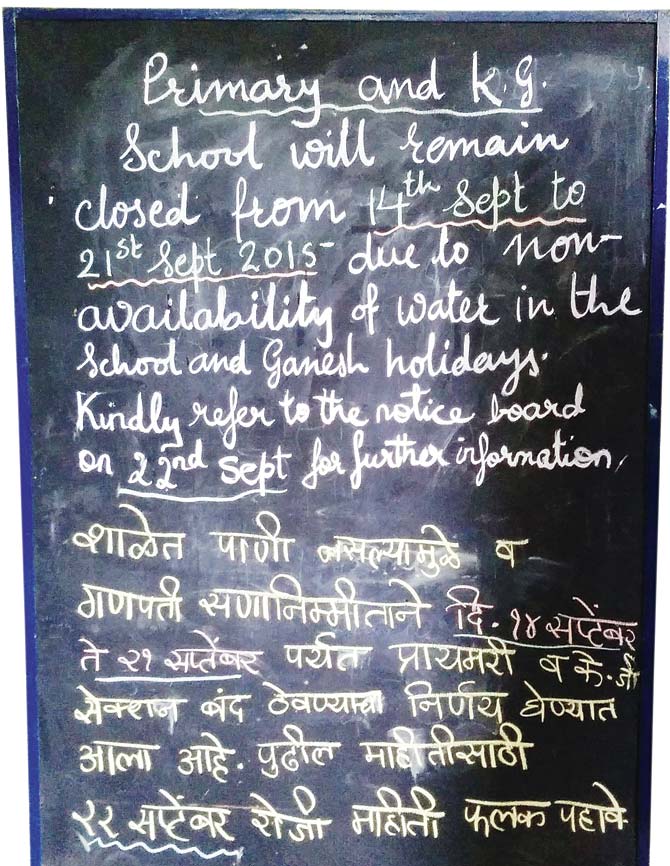 Primary and K.G.
School will remain
closed from 14th Sept to
21st Sept 2015 due to non-
availability of water in the
School and Ganesh holidays.
Kindly refer to the notice board
on 22nd Sept for further information,
शाळेत पाणी नसल्यामुळे व
गणपती सणानिम्मीताने दि. १४ सप्टेंबर
ते २१ सप्टेंबर पर्यंत प्रायमरी व के. जी
सेक्शन बंद ठेवण्याचा निर्णय घेण्यात
आला आहे. पुढील माहीतीसाठी
२२ सप्टेंबर रोजी माहीती फलक पहावे.